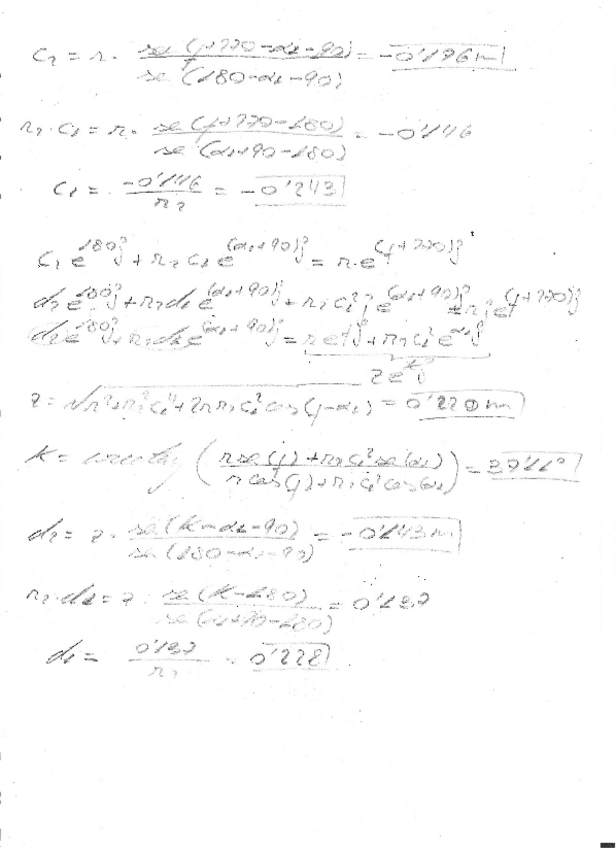 c₂ = r · se(φ+270-α₁-90) / se(180-α₁-90) = -0'196 m
r₂·c₁ = r · se(φ+270-180) / se(α₁+90-180) = -0'146
c₁ = -0'146 / r₂ = -0'243
c₂ e^180j + r₂ c₁ e^(α₁+90)j = r · e^(φ+270)j
d₂ e^180j + r₂ d₁ e^(α₁+90)j + r₂ c₁² j e^(α₁+90)j = r j e^(φ+270)j
d₂ e^180j + r₂ d₁ e^(α₁+90)j = r e^φj + r₂ c₁² e^α₁j
z e^kj
z = √(r² + r₂² c₁⁴ + 2 r r₂ c₁² cos(φ-α₁)) = 0'220 m
k = arctg ( (r se(φ) + r₂ c₁² se(α₁)) / (r cos(φ) + r₂ c₁² cos(α₁)) ) = 37'11°
d₂ = z · se(k-α₁-90) / se(180-α₁-90) = -0'143 m
r₂·d₁ = z · se(k-180) / se(α₁+90-180) = 0'137
d₁ = 0'137 / r₂ = 0'228